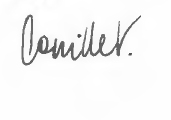 Camille V.